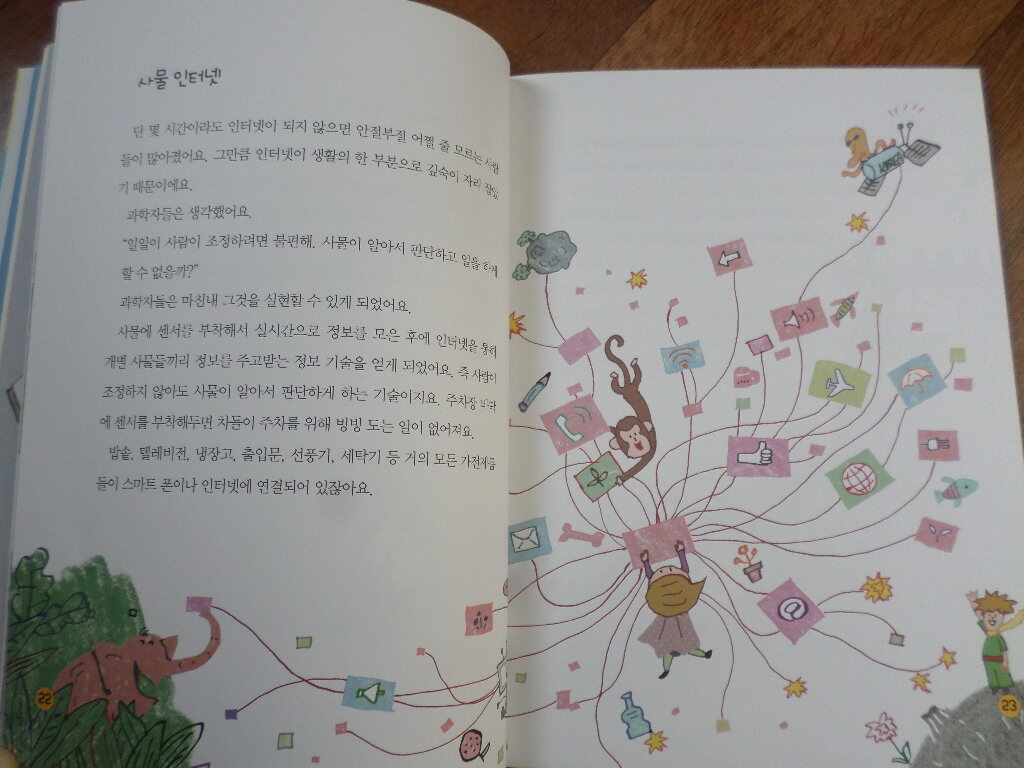 사물 인터넷
단 몇 시간이라도 인터넷이 되지 않으면 안절부절 어쩔 줄 모르는 사람
들이 많아졌어요. 그만큼 인터넷이 생활의 한 부분으로 깊숙이 자리 잡았
기 때문이에요.
과학자들은 생각했어요.
“일일이 사람이 조정하려면 불편해. 사물이 알아서 판단하고 일을 하게
할 수 없을까?”
과학자들은 마침내 그것을 실현할 수 있게 되었어요.
사물에 센서를 부착해서 실시간으로 정보를 모은 후에 인터넷을 통해
개별 사물들끼리 정보를 주고받는 정보 기술을 얻게 되었어요. 즉 사람이
조정하지 않아도 사물이 알아서 판단하게 하는 기술이지요. 주차장 바닥
에 센서를 부착해두면 차들이 주차를 위해 빙빙 도는 일이 없어져요.
밥솥, 텔레비전, 냉장고, 출입문, 선풍기, 세탁기 등 거의 모든 가전제품
들이 스마트 폰이나 인터넷에 연결되어 있잖아요.
22
@
23